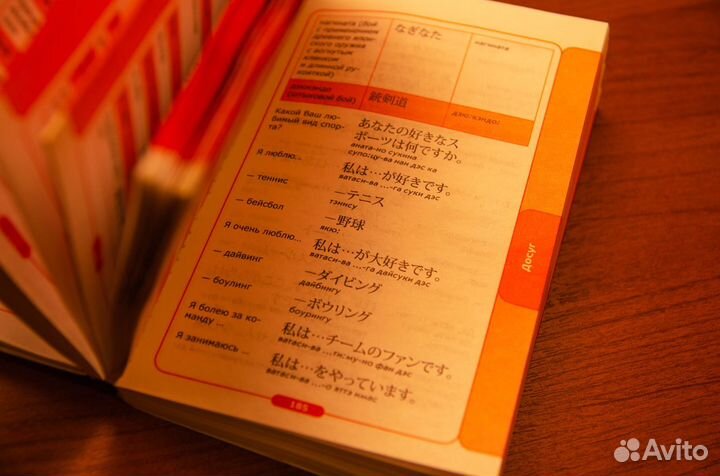 нагината (бой
с применением
древнего япон-
ского оружия
с вогнутым
клинком
и длинной ру-
кояткой)
なぎなた
нагината
дзюкэндо
(штыковой бой)
銃剣道
дзю:кэндо:
Какой Ваш лю-
бимый вид спор-
та?
あなたの好きなス
ポーツは何ですか。
аната-но сукина
супо:цу-ва нан дэс ка
Я люблю...
私は…が好きです。
ватаси-ва ...-га суки дэс
— теннис
—テニス
тэнису
— бейсбол
—野球
якю:
Я очень люблю...
私は…が大好きです。
ватаси-ва ...-га дайсуки дэс
— дайвинг
—ダイビング
дайбингу
— боулинг
—ボウリング
боурингу
Я болею за ко-
манду ...
私は…チームのファンです。
ватаси-ва ...ти:му-но фан дэс
Я занимаюсь ...
私は…をやっています。
ватаси-ва ...-о яттэ имас
185
Досуг
Avito